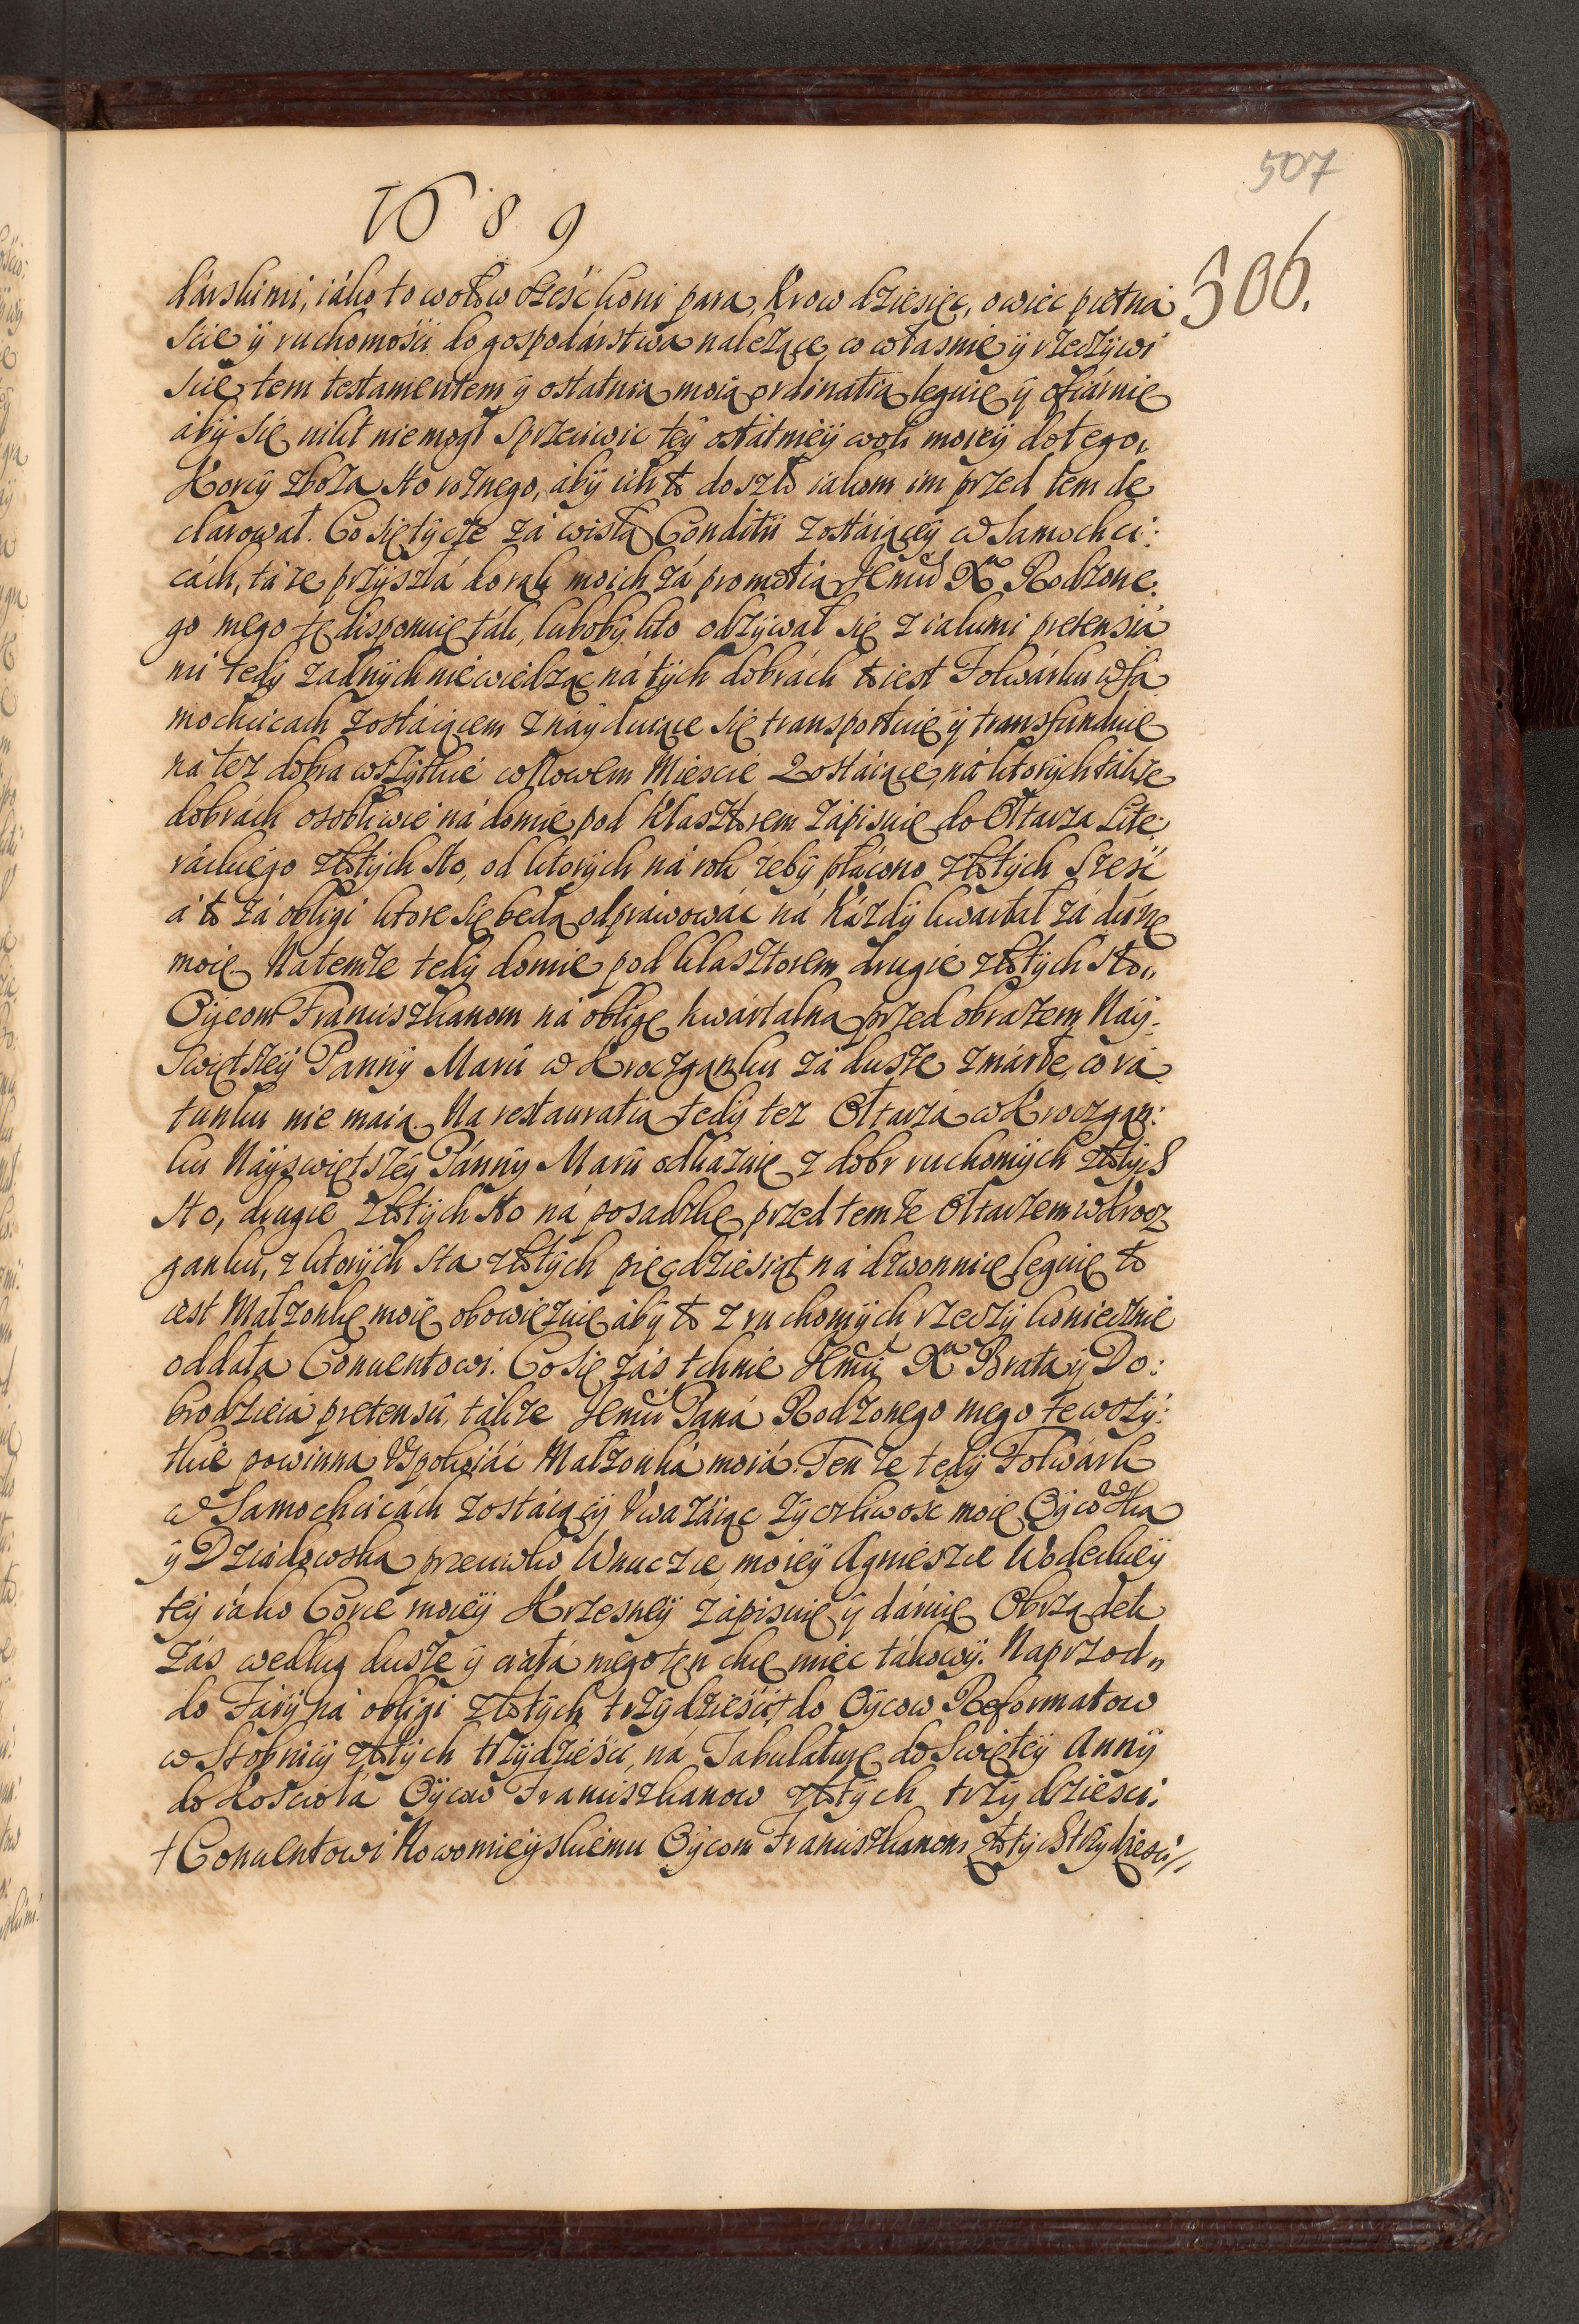 507
1689
506.
dárskimi, iáko to wołow sześć koni para, Krow dziesięc, owiec piętná
scie ÿ ruchomośći do gospodárstwa nalezące, co własnie ÿ rzeczÿwi
scie tem testamentem ÿ ostatnią moią ordinatią leguię ÿ ofiáruię
abÿ się nikt nie mogł sprzeciwic teÿ ostátnieÿ woli moieÿ do tego,
Korcÿ zboza sto roznego, ábÿ ich to doszło iakom im przed tem de
clarował. Co się tÿcze zá wisłą Conditii zostáiąceÿ w Samochci:
cách, tá ze przÿszłá do rąk moich zá promotią Jemći Xa Rodzone:
go mego tę disponuię ták, lubobÿ kto odzÿwał się z iakiemi pretensiá
mi tedÿ zadnÿch nie wiedząc ná tÿch dobrách to iest Folwárku w Sa
mochcicach zostáiącem znáÿduiące się transportuię ÿ transfunduię
na tez dobra wszÿtkie w Nowem Miescie zostáiące, ná ktorÿch tákze
dobrách osobliwie ná domie pod Klasztorem zápisuię do Ołtarza Lite:
ráckiego złotÿch sto, od ktorÿch ná rok zebÿ płácono złotÿch szesć
á to zá obligi ktore się będą odpráwowáć ná Kázdÿ kwartał zá duszę
moię. Na temze tedÿ domie pod klasztorem drugie złotÿch sto,,
Oÿcom Franciszkanom ná obligę kwártalną przed obrazem Náÿ:
Swiętszeÿ Pannÿ Marii w Kroczganku zá dusze zmárłe, co rá
tunku nie maią. Na restauratią tedÿ tez Ołtarzá w Kroczgan:
ku Náÿswiętszeÿ Pánnÿ Marii odkázuię z dobr ruchomÿch złotÿch
sto, drugie złotÿch sto ná posadzkę przed temze Ołtarzem w Krocz
ganku, z ktorÿch sta złotÿch pięcdziesiąt ná dzwonnicę leguię to
iest Małzonkę moię obowięzuię ábÿ to z ruchomÿch rzeczÿ koniecznie
oddała Conuentowi. Co się zás tchnie Jemći Xa Brata ÿ Do:
brodzieia pretensii, tákze Jemći Paná Rodzonego mego te wszÿ:
tkie powinna Vspokoiáć Małzonká moiá. Ten ze tedÿ Folwárk
w Samochcicách zostáiącÿ Vwazáiąc zÿczliwosc moię Oÿcowską
ÿ Dziadowską przeciwko Wnuczce moieÿ Agnieszce Wodeckieÿ
teÿ iáko Corce moieÿ Krzesneÿ zápisuię ÿ dáruię. Obrządek
zás według dusze ÿ ciałá mego ten chcę miec tákowÿ. Naprzod,,
do Fárÿ ná obligi złotÿch trzÿdziesći, † do Oÿcow Reformatow
w Stobnicÿ złotÿch trzÿdziesci, ná Tabulaturę do Swięteÿ Annÿ
do Kosciołá Oÿcow Franciszkanow złotÿch trzÿdziesci:
† Conuentowi Nowomieÿskiemu Oÿcom Franciszkanom złotÿch trzÿdziesci //